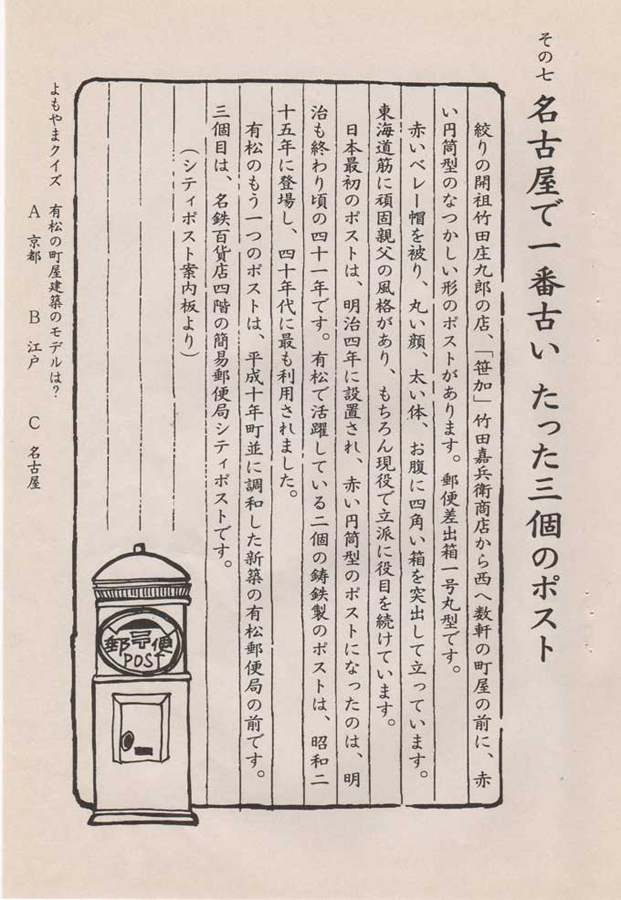 その七 名古屋で一番古い たった三個のポスト
絞りの開祖竹田庄九郎の店、「笹加」竹田嘉兵衛商店から西へ数軒の町屋の前に、赤
い円筒型のなつかしい形のポストがあります。郵便差出箱一号丸型です。
赤いベレー帽を被り、丸い顔、太い体、お腹に四角い箱を突出して立っています。
東海道筋に頑固親父の風格があり、もちろん現役で立派に役目を続けています。
日本最初のポストは、明治四年に設置され、赤い円筒型のポストになったのは、明
治も終わり頃の四十一年です。有松で活躍している二個の鋳鉄製のポストは、昭和二
十五年に登場し、四十年代に最も利用されました。
有松のもう一つのポストは、平成十年町並に調和した新築の有松郵便局の前です。
三個目は、名鉄百貨店四階の簡易郵便局シティポストです。
(シティポスト案内板より)
よもやまクイズ 有松の町屋建築のモデルは?
A 京都 B 江戸 C 名古屋
郵便
POST